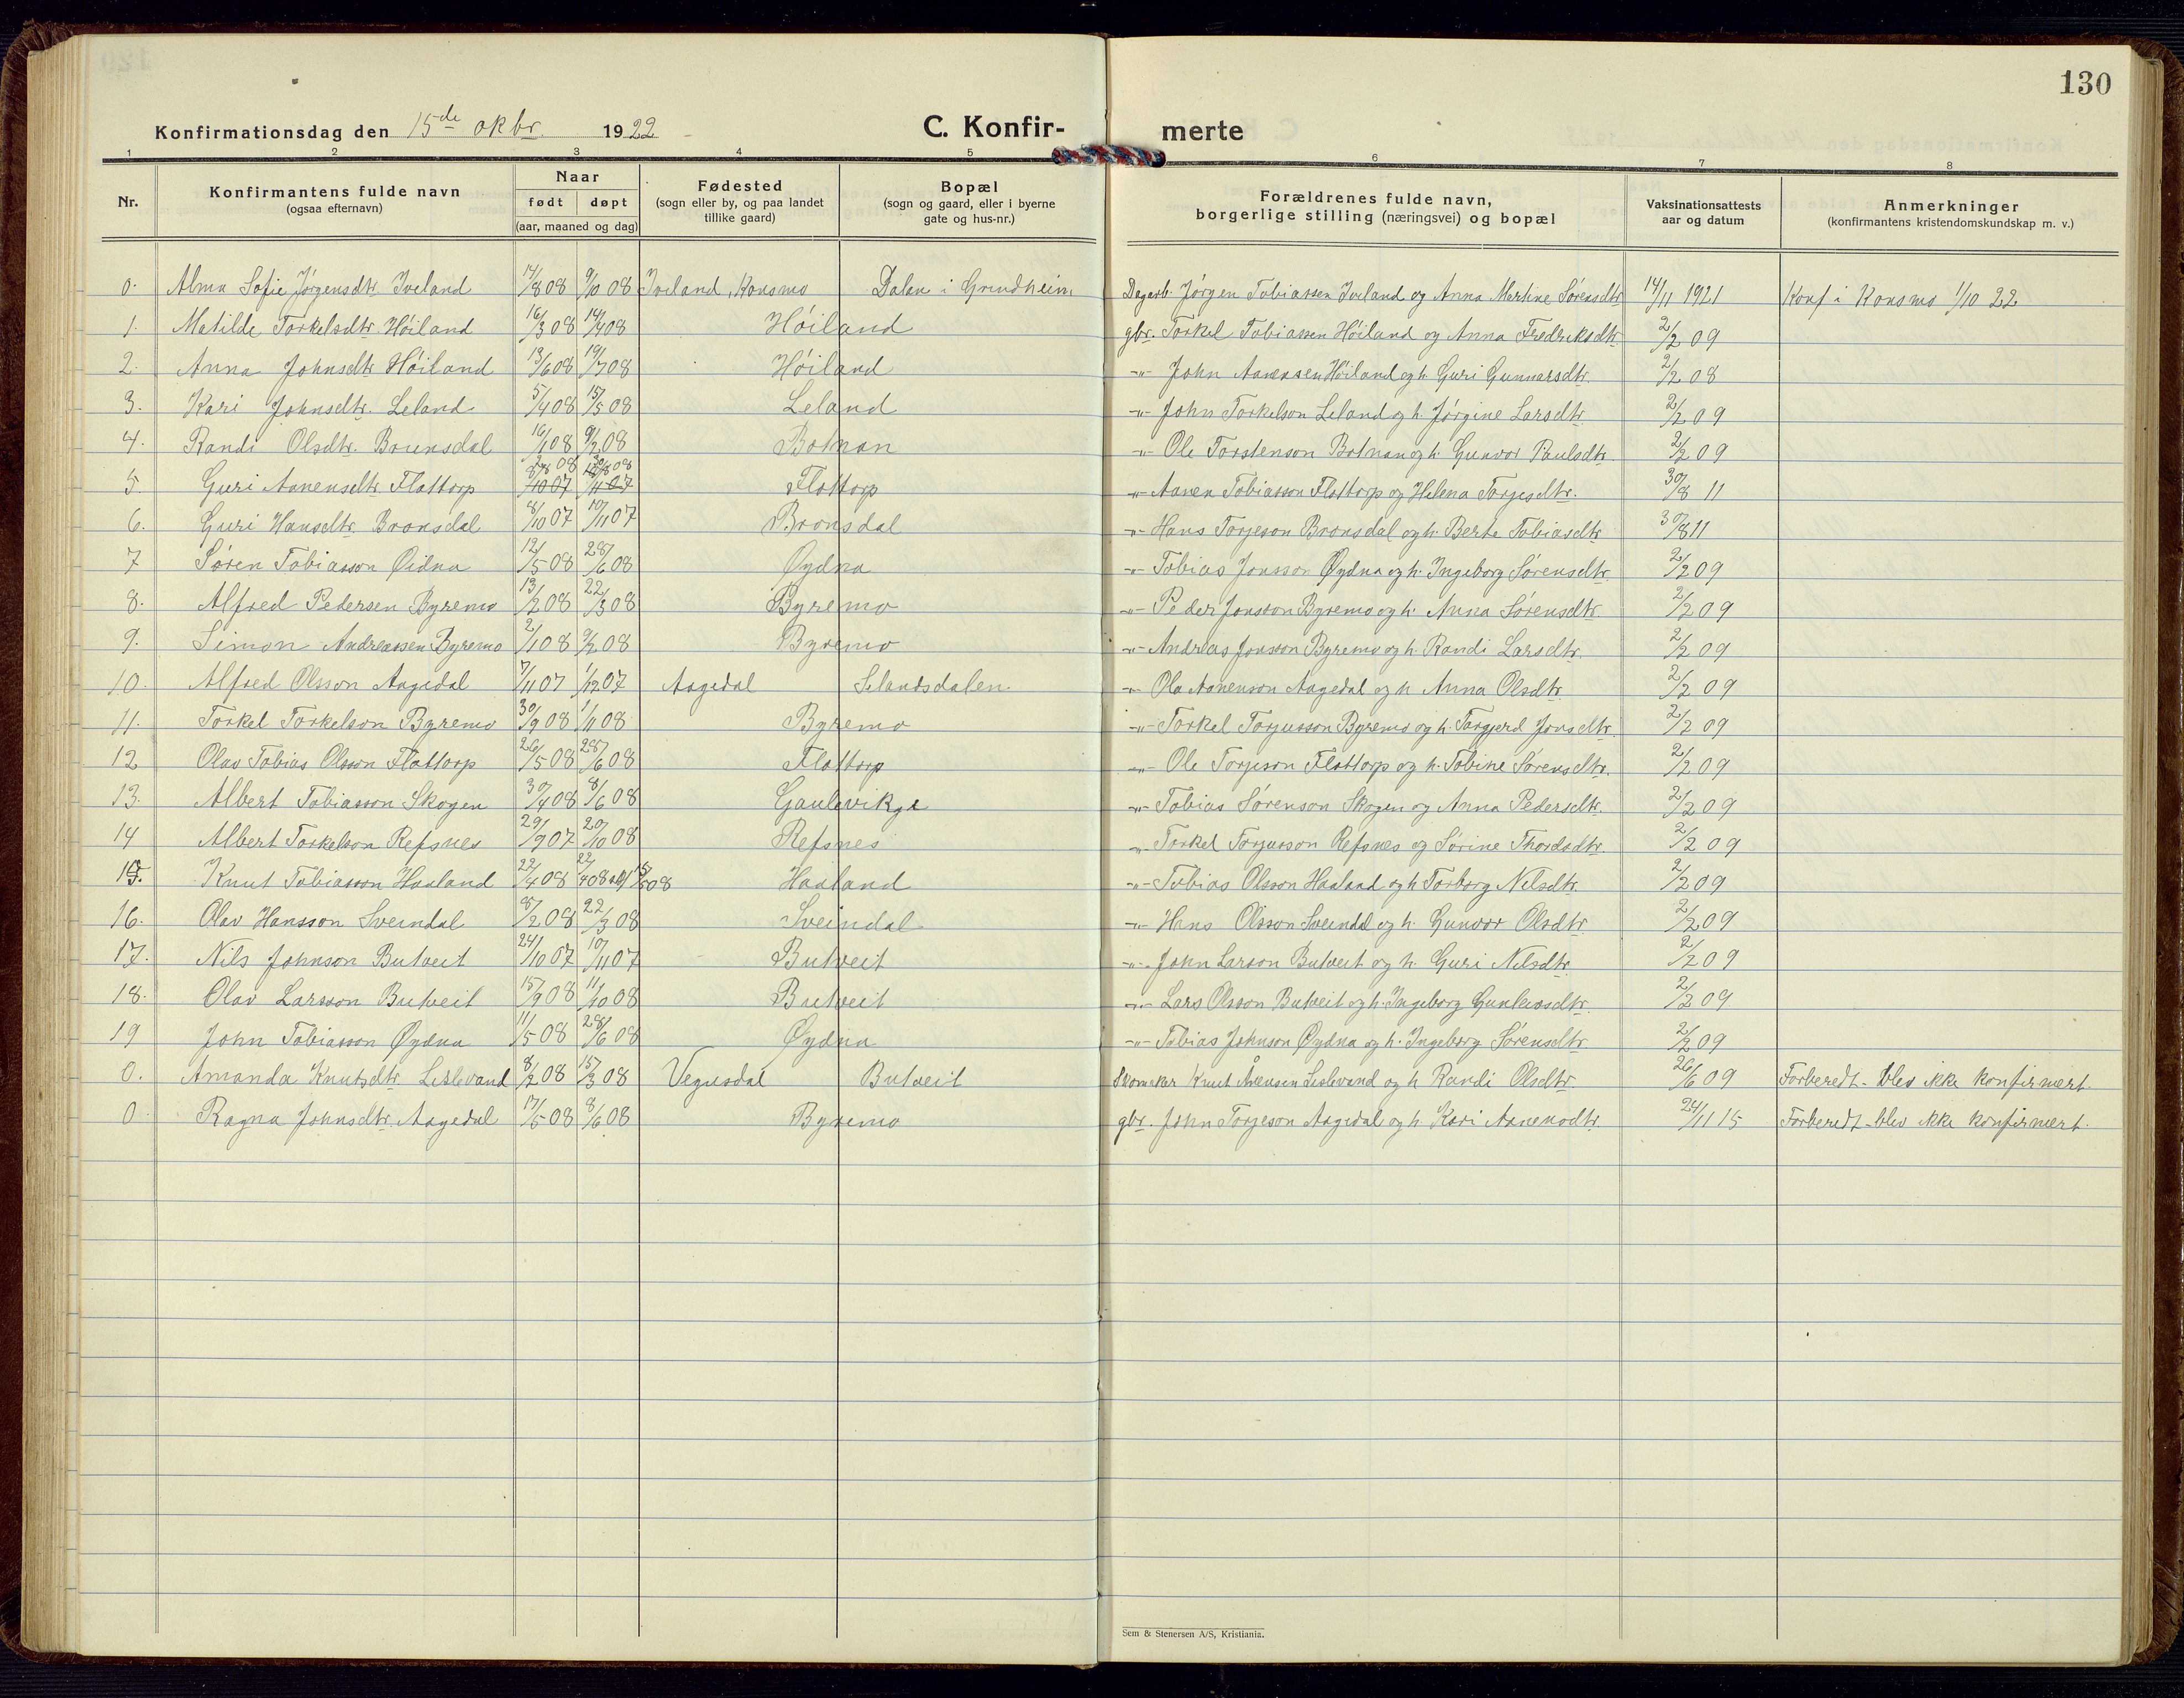 130
Konfirmationsdag den 15de okbr. 1922
C. Konfir- merte
1 2 3 4 5 6 7 8
Nr. Konfirmantens fulde navn (ogsaa efternavn) Naar født døpt (aar, maaned og dag) Fødested (sogn eller by, og paa landet tillike gaard) Bopæl (sogn og gaard, eller i byerne gate og hus-nr.) Forældrenes fulde navn, borgerlige stilling (næringsvei) og bopæl Vaksinationsattests aar og datum Anmerkninger (konfirmantens kristendomskundskap m. v.)
0. Alma Sofie Jørgensdtr. Iveland 17/8 08 9/10 08 Iveland, Konsmo Dalan i Grindheim Dagarb. Jørgen Tobiassen Iveland og Anna Martine Sørensdtr 14/11 1921 Konf i Konsmo 1/10 22
1. Matilde Torkelsdtr. Höiland 16/3 08 14/4 08 Höiland gbr. Torkel Tobiassen Höiland og Anna Fredriksdtr 2/2 09
2. Anna Johnsdtr Höiland 13/6 08 19/7 08 Höiland -"- John Aanensen Höiland og h. Guri Gunnarsdtr. 2/2 08
3. Kari Johnsdtr. Leland 5/4 08 15/5 08 Leland -"- John Torkelson Leland og h. Jørgine Larsdtr 2/2 09
4. Randi Olsdtr. Brunsdal 16/1 08 9/2 08 Botnan -"- Ole Torstenson Botnan og h. Gunvor Paulsdtr 2/2 09
5 Guri Aanensdtr. Flottorp 8/10 07 11 07 Flottorp -"- Aanen Tobiasson Flottorp og Helena Torjesdtr. 30/8 11
6. Guri Hansdtr. Bronsdal 8/10 07 10/11 07 Bronsdal -"- Hans Torjeson Bronsdal og h. Berte Tobiasdtr 30/8 11
7 Søren Tobiasson Øidna 12/5 08 28/6 08 Øydna -"- Tobias Jonsson Øydna og h. Ingeborg Sørensdtr 2/2 09
8. Alfred Pedersen Byremo 13/2 08 22/3 08 Byremo -"- Peder Jonsson Byremo og h. Anna Sørensdtr. 2/2 09
9. Simon Andreassen Byremo 2/1 08 9/2 08 Byremo -"- Andreas Jonsson Byremo og h. Randi Larsdtr. 2/2 09
10. Alfred Olsson Aagedal 7/11 07 1/12 07 Aagedal Selandsdalen -"- Ola Aanenson Aagedal og h Anna Olsdtr. 2/2 09
11. Torkel Torkelson Byremo 30/9 08 1/11 08 Byremo -"- Torkel Torjusson Byremo og h. Torgjerd Jonsdtr. 2/2 09
12 Olav Tobias Olsson Flottorp 26/5 08 28/6 08 Flottorp -"- Ole Torjeson Flottorp og h. Tobine Sørensdtr. 2/2 09
13. Albert Tobiasson Skogen 30/4 08 8/6 08 Gaulevikje -"- Tobias Sørenson Skogen og Anna Pedersdtr. 2/2 09
14 Albert Torkelson Refsnes 29/9 07 20/10 08 Refsnes -"- Torkel Torjusson Refsnes og Sørine Thordsdtr. 2/2 09
15. Knut Tobiasson Haaland 22/4 08 22/4 08 08 Haaland -"- Tobias Olsson Haaland og h Torborg Nilsdtr. 2/2 09
16. Olav Hansson Sveindal 8/2 08 22/3 08 Sveindal -"- Hans Olsson Sveindal og h. Gunvor Olsdtr. 2/2 09
17. Nils Johnson Butveit 24/10 07 10/11 07 Butveit -"- John Larson Butveit og h. Guri Nilsdtr. 2/2 09
18. Olav Larsson Butveit 15/9 08 11/10 08 Butveit -"- Lars Olsson Butveit og h. Ingeborg Gunlevsdtr. 2/2 09
19 John Tobiasson Øydna 11/5 08 28/6 08 Øydna -"- Tobias Johnson Øydna og h. Ingeborg Sørensdtr. 2/2 09
0. Amanda Knutsdtr. Leslevand 8/2 08 15/3 08 Vegusdal Butveit Skomaker Knut Ånensen Leslevand og h Randi Olsdtr. 26/6 09 Forberedt - blev ikke konfirmert.
0 Ragna Johnsdtr. Aagedal 17/5 08 8/6 08 Byremo gbr. John Torjeson Aagedal og h. Kari Aanensdtr. 24/11 15 Forberedt - blev ikke konfirmert.
Sem & Stenersen A/S, Kristiania.